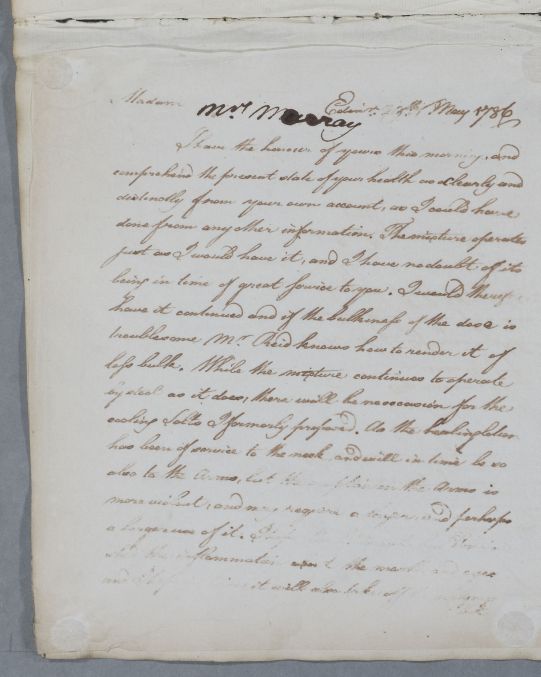 Madam
Mrs Murray
Edinr. 29th May 1786
I have the honour of yours this morning, and
comprehend the present state of your health as clearly and
distinctly from your own account, as I could have
done from any other information. The mixture operates
just as I would have it, and I have no doubt of its
being in time of great service to you. I would therefore
have it continued and if the bulkiness of the dose is
troublesome Mr. Reid knows how to render it of
less bulk. While the mixture continues to operate
by stool as it does, there will be no occasion for the
cooling Salts I formerly proposed. As the
has been of service to the neck and will in time be so
also to the Arms, but the in the Arms is
more violent, and may require a longer, and perhaps
a larger use of it.
the inflammation the and
and it will also take off the